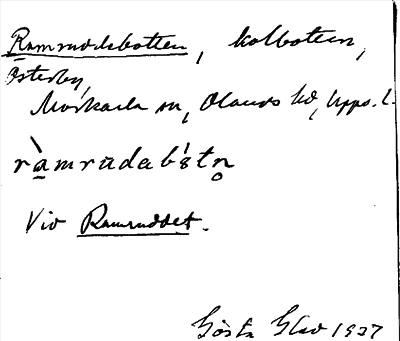 Ramruddsbotten, kolbotten,
Österby,
Morkarla sn, Olands hd, Upps. l.
ràmrudabótn̥
Vid Ramruddet.
Gösta Glad 1937